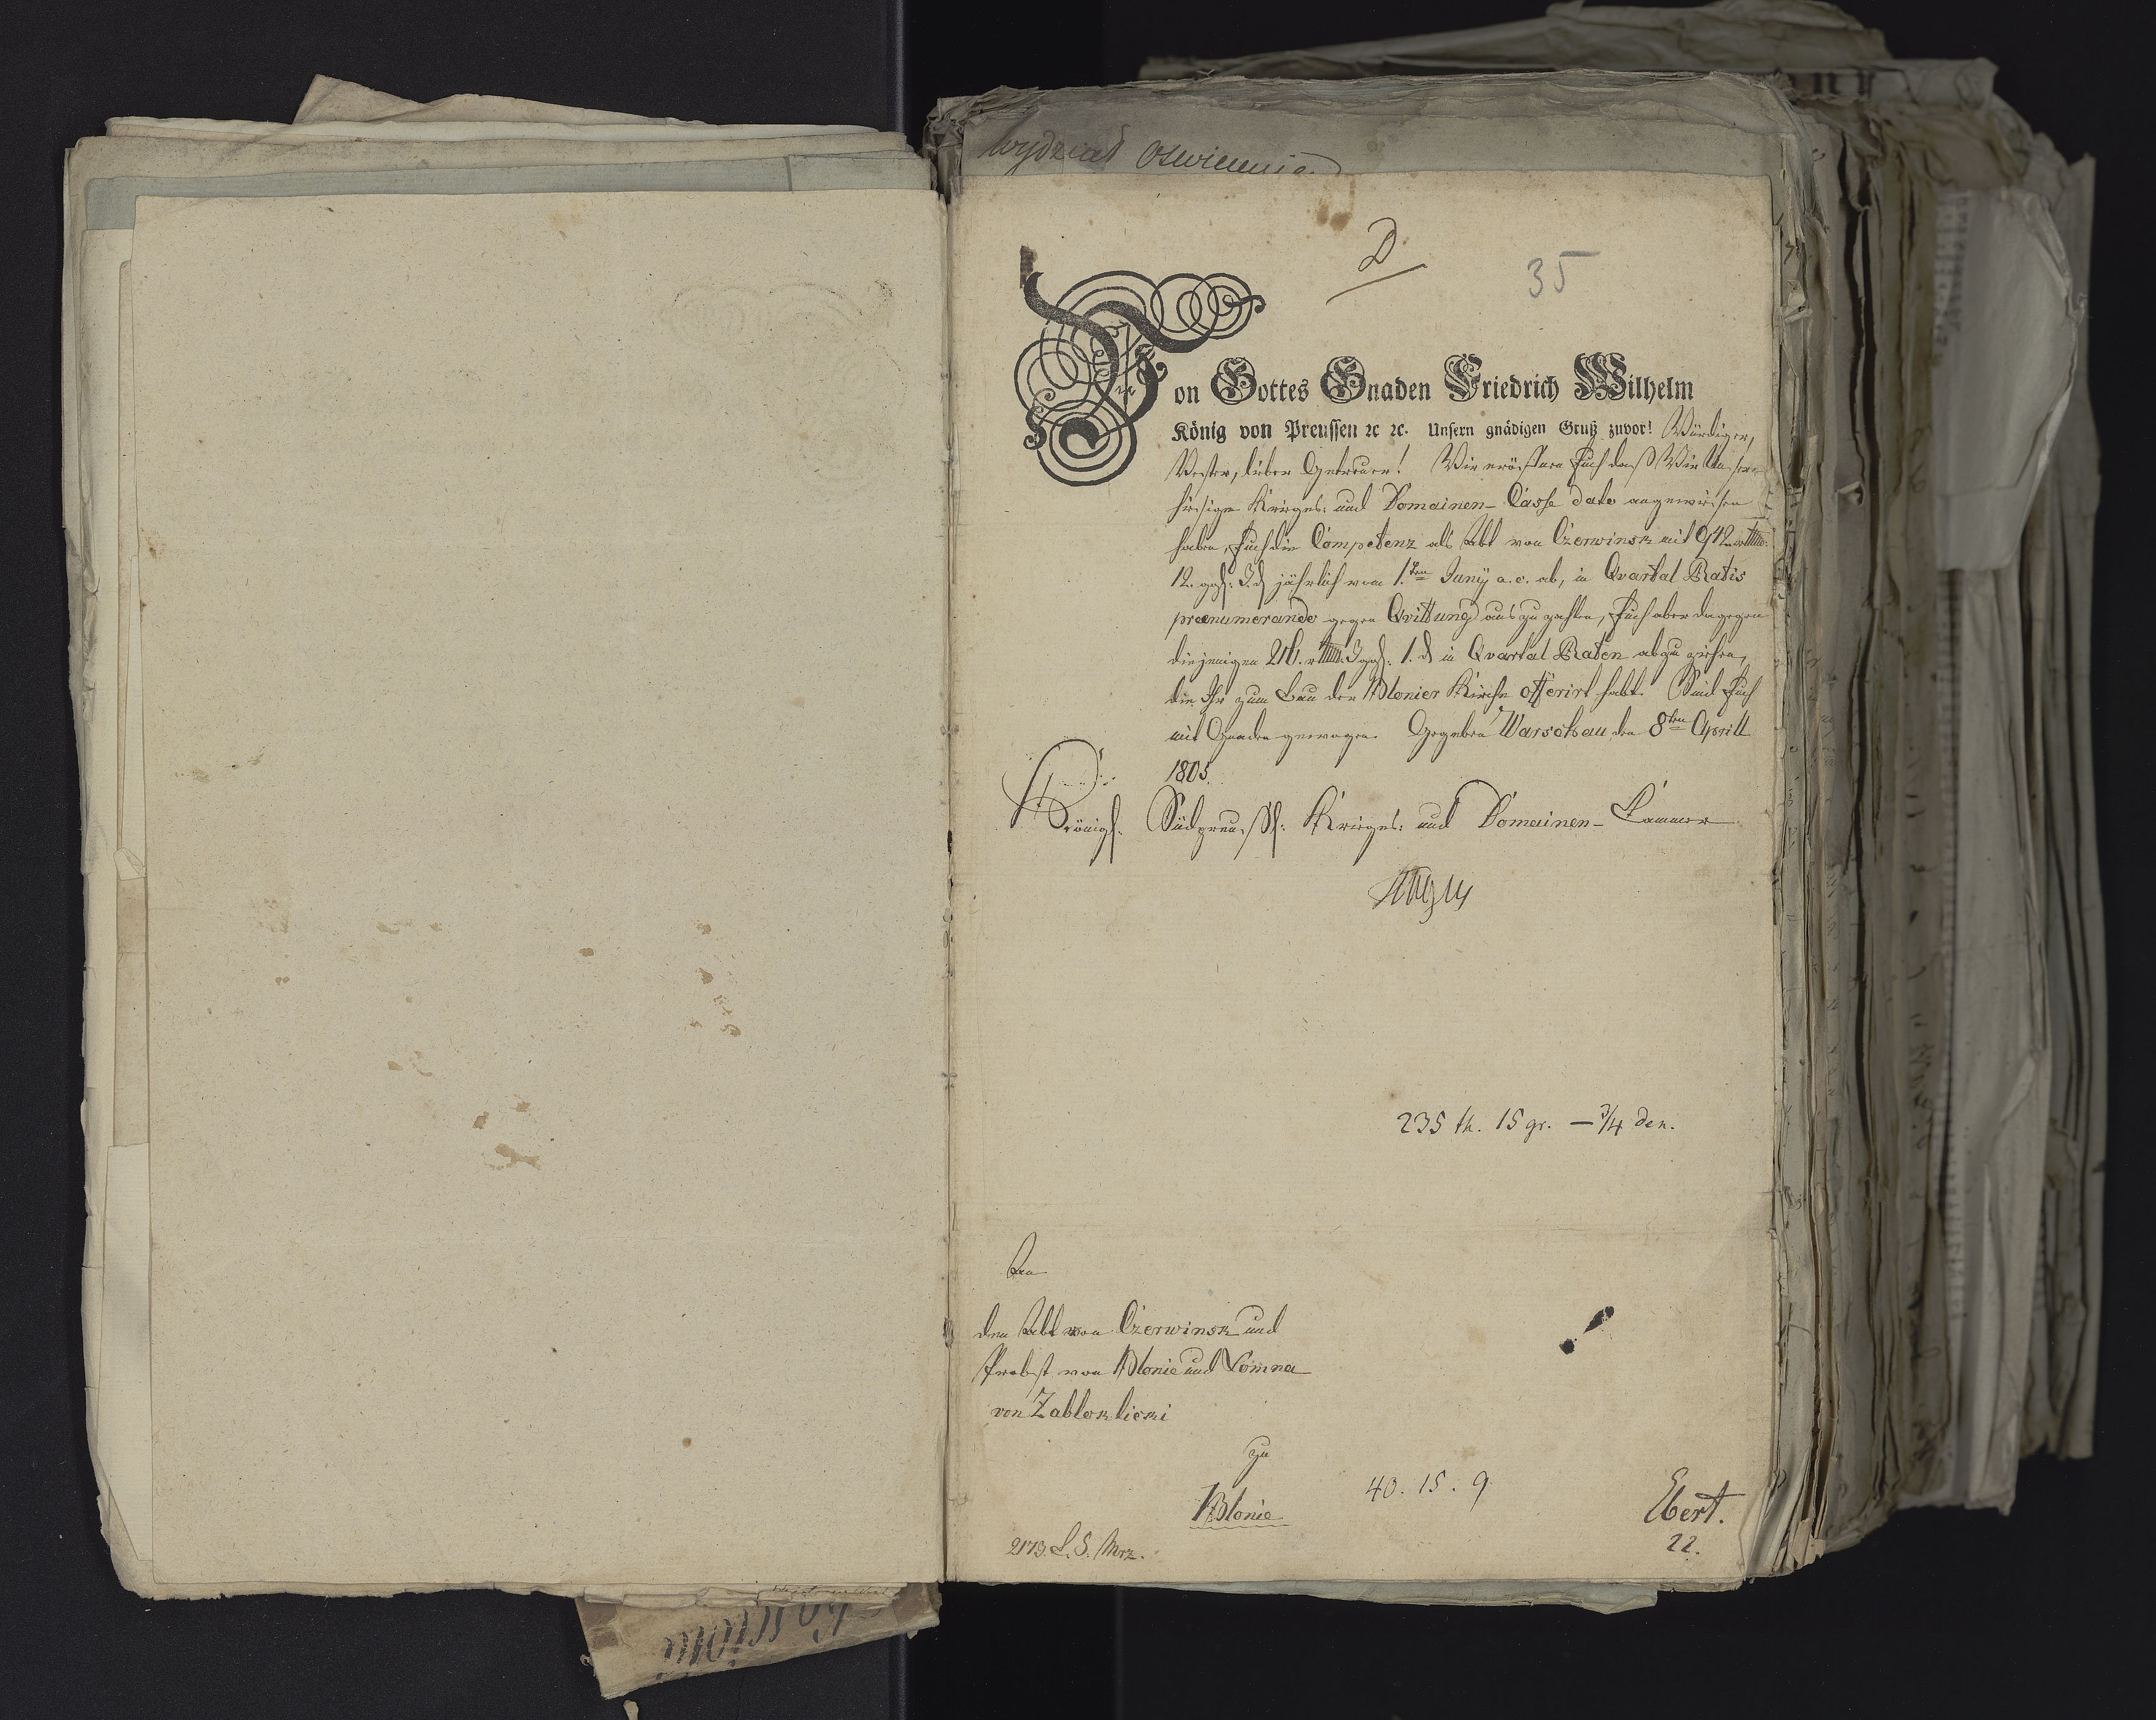 Wydział Oswiecenia
D
35
Von Gottes Gnaden Friedrich Wilhelm
König von Preussen ꝛc ꝛc. Unsern gnädigen Gruß zuvor! Würdiger,
Vester, lieber Getreuer! Wir eröffnen Euch daß Wir Unsere
hiesige Krieges- und Domainen-Casse dato angewiesen
haben, Euch die Competenz als Abt von Czerwinsk mit 942 rthlr.
12. ggl. 3. d jährlich vom 1.ten Juny a. c. ab, in Qvartal Ratis
prænumerando gegen Qvittung auszuzahlen, Euch aber dagegen
diejenigen 216. rthlr. 3 ggl. 1. d in Qvartal Raten abzuziehen,
die Ihr zum Bau der Blonier Kirche offerirt habt. Sind Euch
mit Gnaden gewogen. Gegeben Warschau den 8ten Aprill
1805.
Königl. Südpreußl. Krieges- und Domainen-Cammer
235 th. 15 gr. — 3/4 den.
An
den Abt von Czerwinsk und
Probst von Blonie und Lomna
von
zu
Blonie
40. 15. 9.
Ebert.
22.
2173. L. S. Mrz.